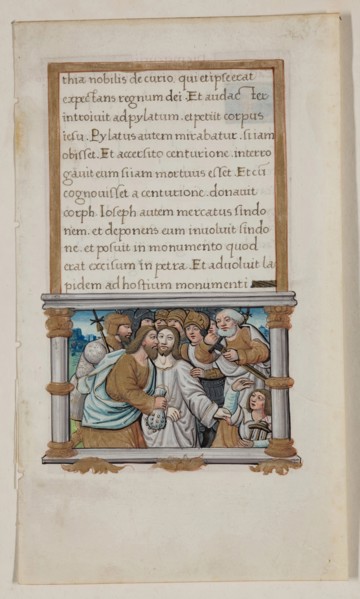 thiæ nobilis decurio, qui et ipse erat
expectans regnum dei. Et audacter
introiuit ad pylatum, et petiit corpus
iesu. Pylatus autem mirabatur, si iam
obisset. Et accersito centurione, interro
gauit eum si iam mortuus esset. Et cū
cognouisset a centurione, donauit
corpꝰ. Ioseph autem mercatus sindo
nem, et deponens eum inuoluit sindo
ne, et posuit in monumento quod
erat excisum in petra. Et aduoluit la
pidem ad hostium monumenti